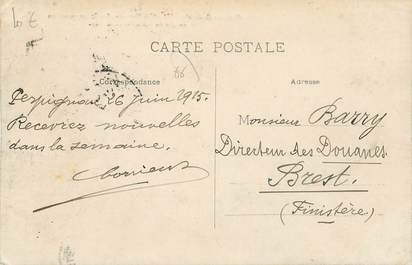 CARTE POSTALE
Correspondance
Adresse
Perpignan 26 Juin 1915.
Recevrez nouvelles
dans la semaine.
Monsieur Barry
Directeur des Douanes
Brest.
(Finistère)